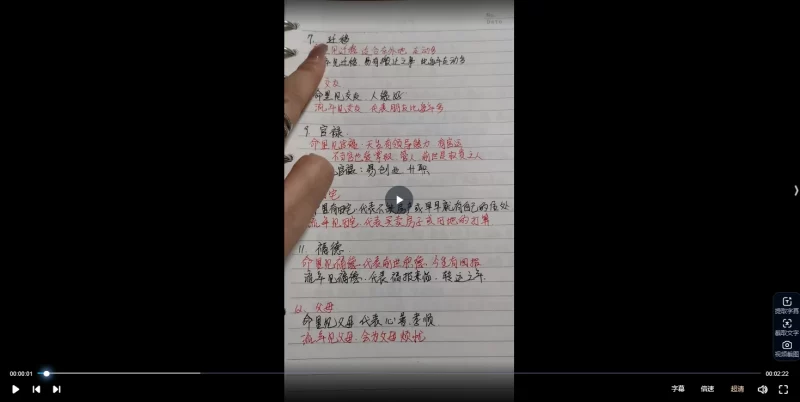 7. 迁移
见迁移 适合在外地 走动多
年见迁移 易有搬迁之事 比每年走动多
交友
命里见交友 人缘好
流年见交友 代表朋友比每年多
9. 官禄
命里见官禄. 天生有领导能力 有官运
不当官也爱掌权 管人
官禄: 易创业 升职
宅
里有田宅. 代表不缺房产或早早就有自己的居处
流年见田宅. 代表买卖房子或田地的打算
11. 福德
命里见福德. 代表前世积德. 今生有回报
流年见福德. 代表福报来临. 转运之年.
12. 父母
命里见父母 代表心善. 孝顺
流年见父母. 会为父母烦忧
提取字幕
截取文字
视频截图
00:00:01
00:02:22
字幕
倍速
超清